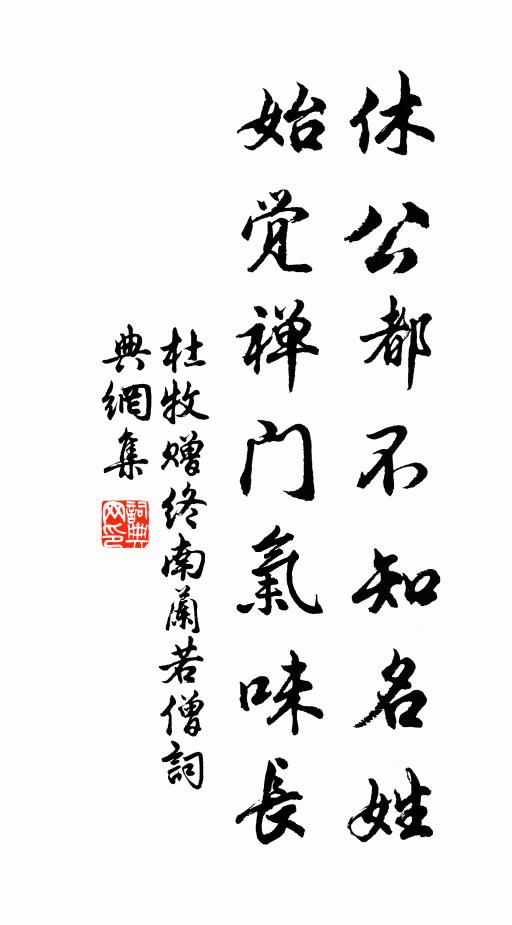 休公都不知名姓
始觉禅门氣味長
杜牧赠终南蘭若僧詞
典網集
詞典网印